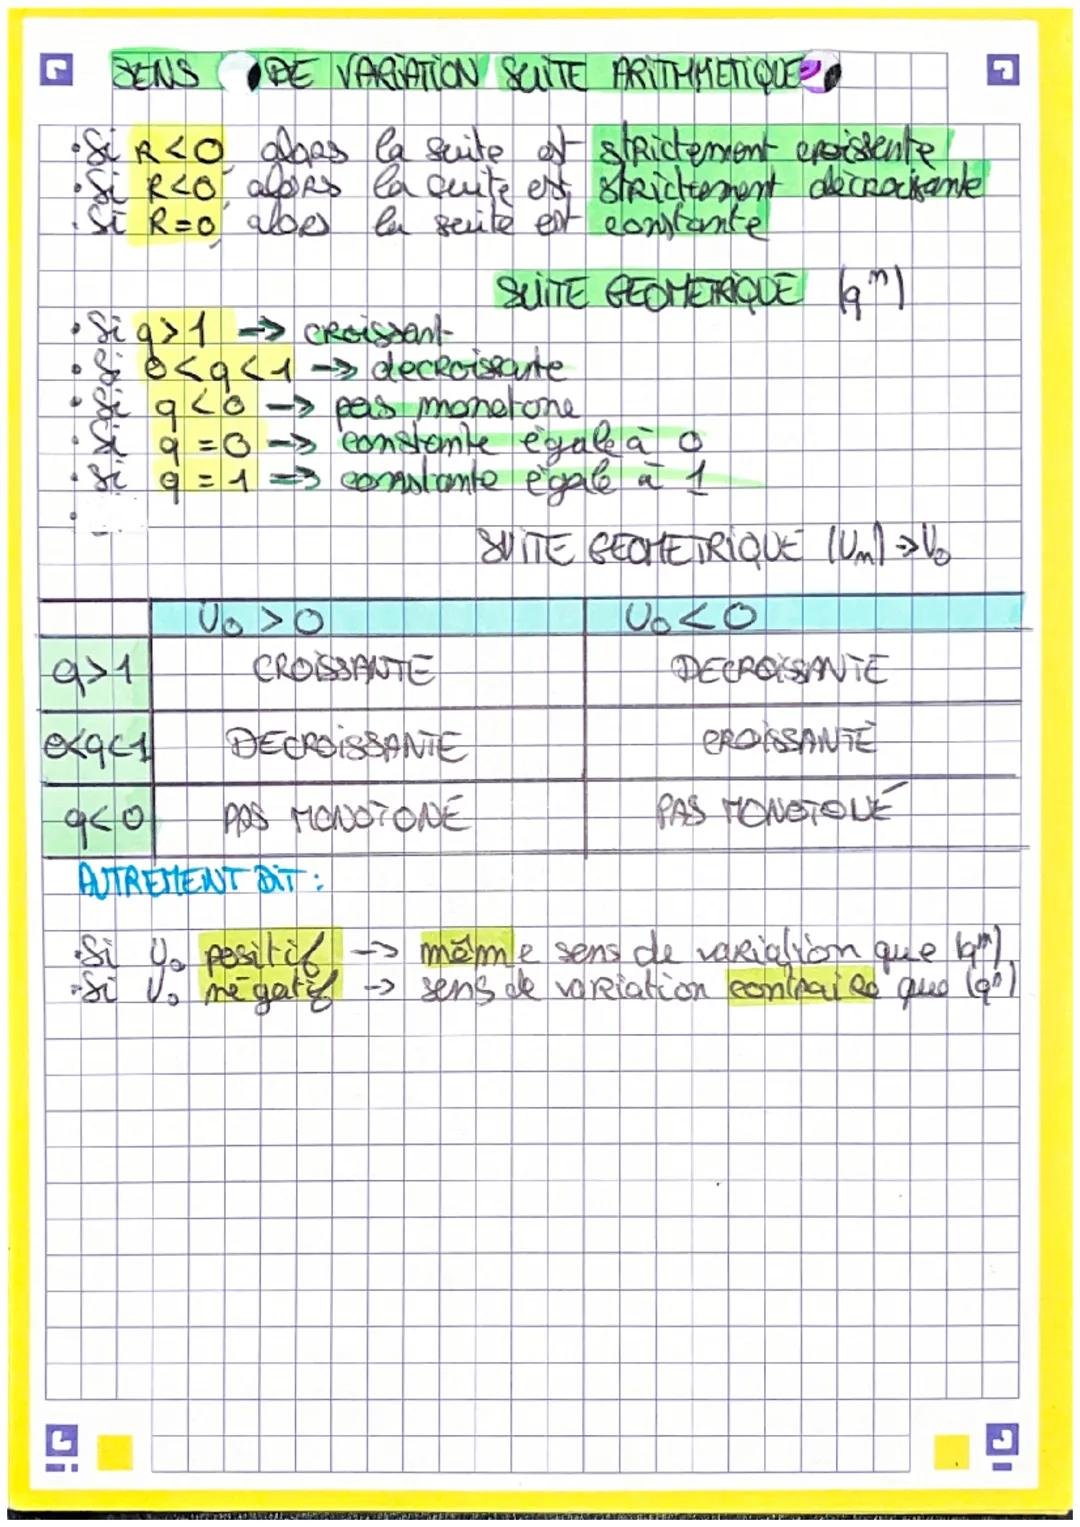 SENS DE VARIATION SUITE ARITHMETIQUE
• Si R<0, alors la suite est strictement croissante
• Si R<0, alors la suite est strictement decroissante
• Si R=0, alors la suite est constante
SUITE GEOMETRIQUE (qⁿ)
• Si q>1 → croissant
• Si 0<q<1 → decroissante
• Si q<0 → pas monotone
• Si q=0 → constante égale à 0
• Si q=1 → constante égale à 1
SUITE GEOMETRIQUE (Un) → U₀
U₀>0 U₀<0
q>1 CROISSANTE DECROISSANTE
0<q<1 DECROISSANTE CROISSANTE
q<0 PAS MONOTONE PAS MONOTONE
AUTREMENT DIT :
• Si U₀ positif → même sens de variation que (qⁿ)
• Si U₀ négatif → sens de variation contraire que (qⁿ)